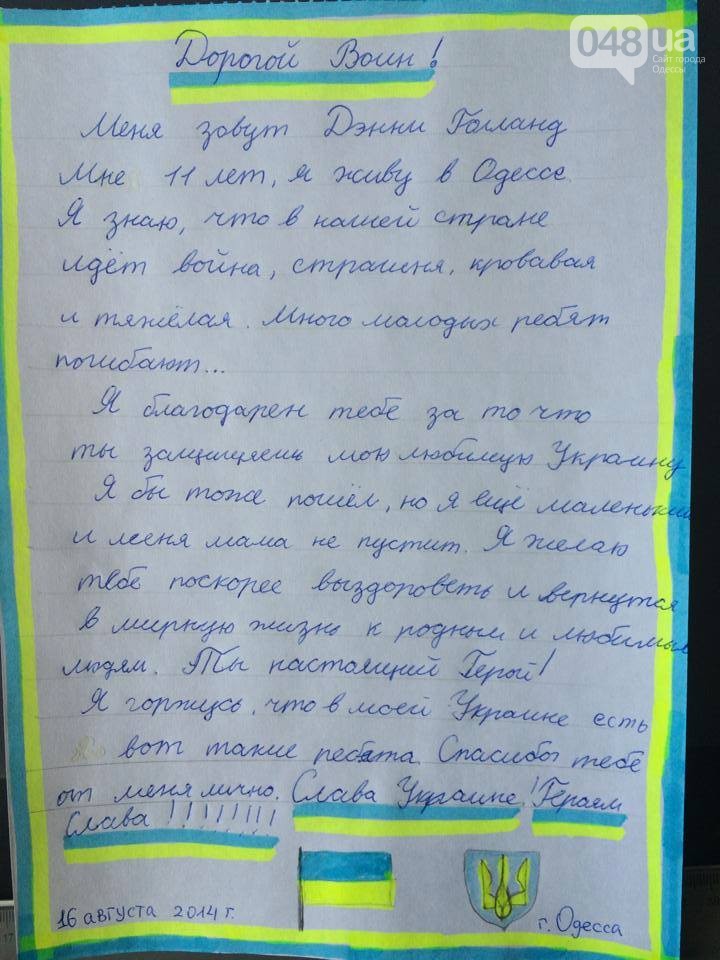 048ua
Сайт города
Одессы
Дорогой Воин!
Меня зовут Дэнни Голланд
Мне 11 лет, я живу в Одессе.
Я знаю, что в нашей стране
идёт война, страшня, кровавая
и тяжёлая. Много молодых ребят
погибают...
Я благодарен тебе за то что
ты защищаешь мою любимую Украину
Я бы тоже пошёл, но я ещё маленький
и меня мама не пустит. Я желаю
тебе поскорее выздороветь и вернутся
в мирную жизнь к родным и любимым
людям. Ты настоящий Герой!
Я горжусь, что в моей Украине есть
вот такие ребята. Спасибо тебе
от меня лично. Слава Украине! Героям
Слава!!!!!!!!
16 августа 2014 г.
г. Одесса